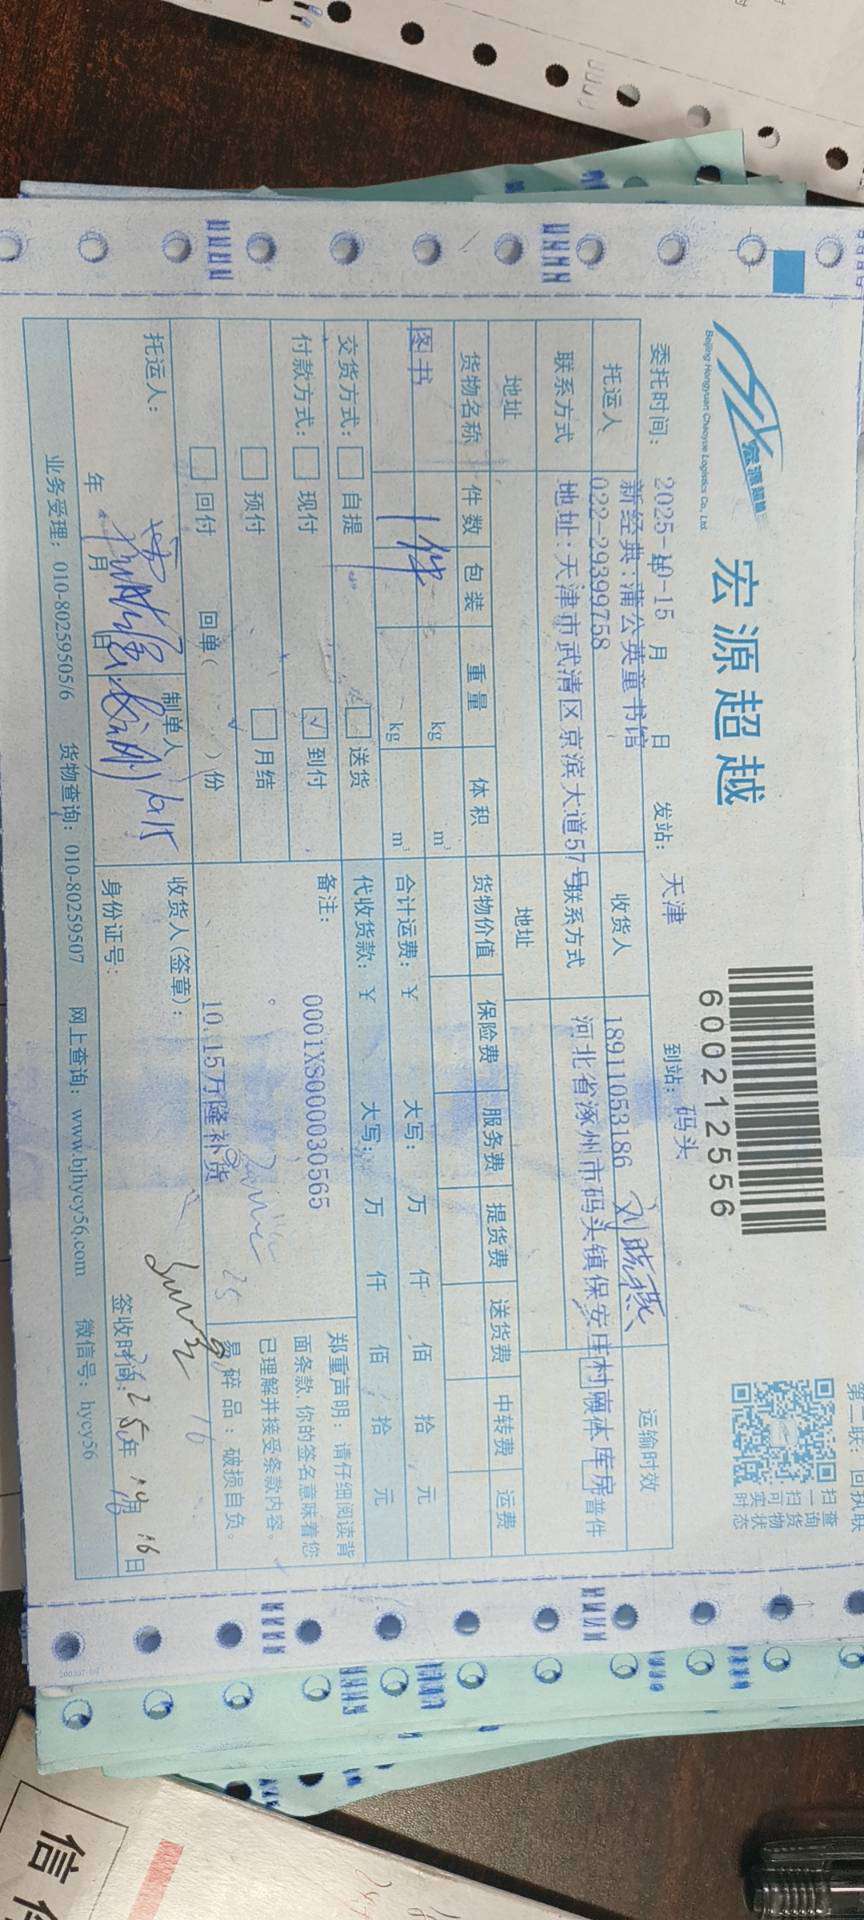 宏源超越
Beijing Hongyuan Chaoyue Logistics Co., Ltd
600212556
扫一扫可实时
查询货物状态
委托时间： 2025-10-15 年 月 日 发站： 天津 到站： 码头
托运人 新经典：蒲公英童书馆 收货人 18911053186 刘晓燕 运输时效
022-29399758
联系方式 地址：天津市武清区京滨大道57号 联系方式 河北省涿州市码头镇保安庄村 库房 普件
地址 地址
货物名称 件数 包装 重量 体积 货物价值 保险费 服务费 提货费 送货费 中转费 运费
图书 1件 kg m³
kg m³
合计运费：¥ 大写： 万 仟 佰 拾 元
交货方式： 自提 送货 代收货款：¥ 大写： 万 仟 佰 拾 元
付款方式： 现付 ✓ 到付
预付 月结
回付 回单（ ）份
备注： 0001XS000030565
10.15万隆补货
郑重声明：请仔细阅读背
面条款，你的签名意味着您
已理解并接受条款内容。
易碎品：破损自负。
托运人： 制单人 收货人(签章)：
年 月 日 10/15 身份证号： 签收时间：2025年 10月 16日
业务受理：010-80259505/6 货物查询：010-80259507 网上查询：www.bjhycy56.com 微信号：hycy56